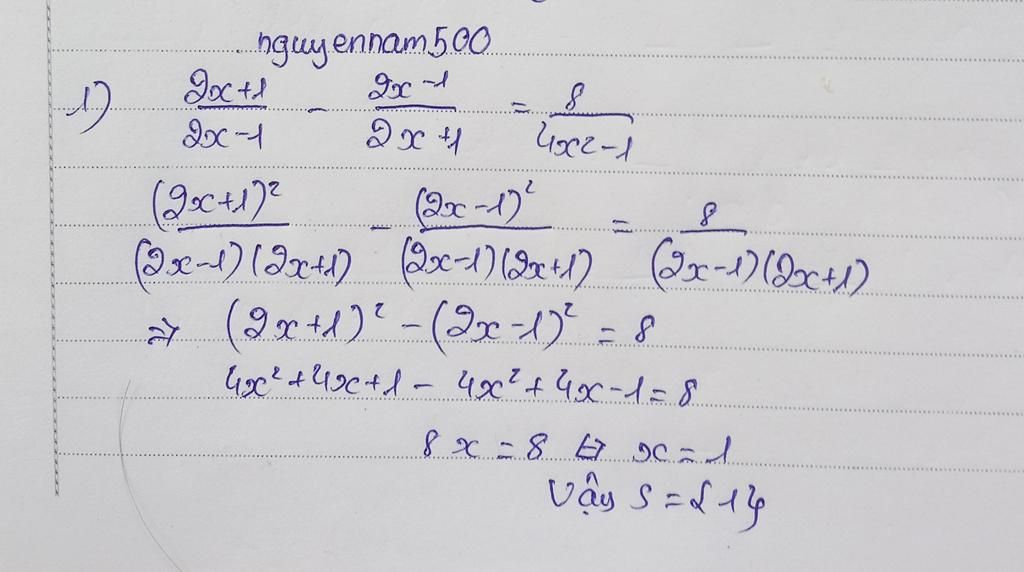 nguyennam500
1) (2x+1)/(2x-1) - (2x-1)/(2x+1) = 8/(4x²-1)
(2x+1)²/((2x-1)(2x+1)) - (2x-1)²/((2x-1)(2x+1)) = 8/((2x-1)(2x+1))
⇒ (2x+1)² - (2x-1)² = 8
4x²+4x+1 - 4x²+4x-1=8
8x = 8 ⇔ x=1
Vậy S={1}